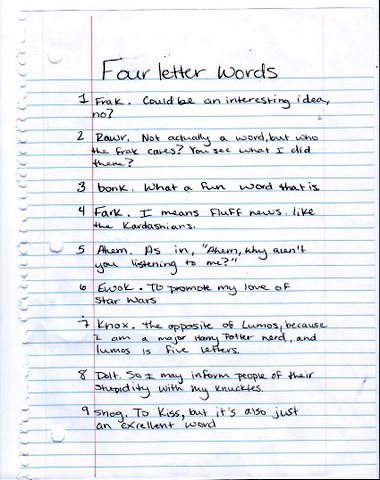 Four letter words
1 Frak. Could be an interesting idea,
no?
2 Rawr. Not actually a word, but who
the frak cares? You see what I did
there?
3 bonk. What a fun word that is
4 Fark. I means fluff news. like
the Kardashians.
5 Ahem. As in, "Ahem, why aren't
you listening to me?"
6 Ewok. To promote my love of
Star Wars
7 Knox. The opposite of Lumos, because
I am a major Harry Potter nerd, and
lumos is five letters.
8 Dolt. So I may inform people of their
stupidity with my knuckles.
9 Snog. To kiss, but it's also just
an excellent word